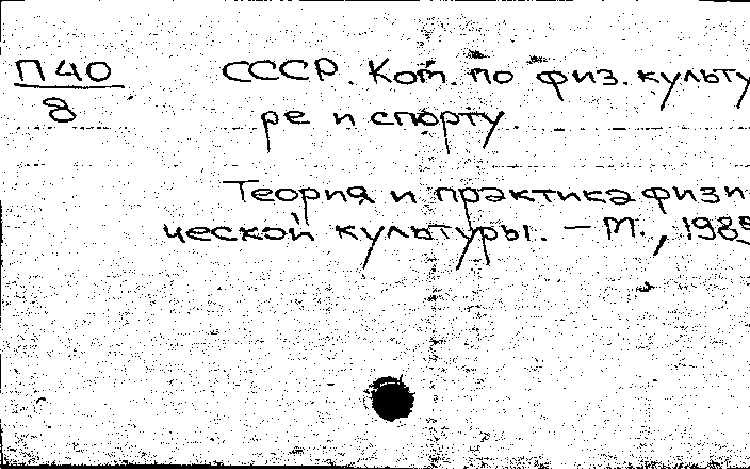 П40
8
СССР. Ком. по физ. культу
ре и спорту
Теория и практика физи
ческой культуры. — М., 1985